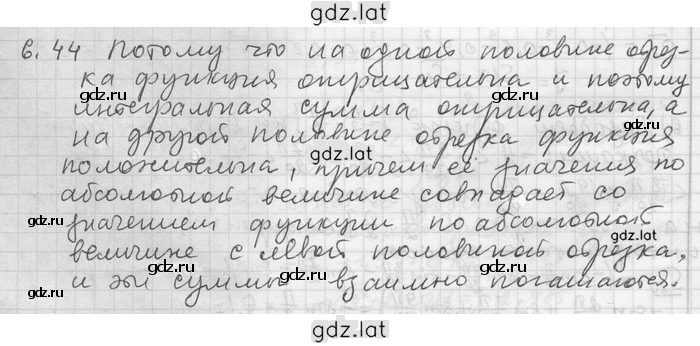 gdz.lat
6.44 Потому что на одной половине отрез-
ка функция отрицательна и поэтому
gdz.lat gdz.lat
интегральная сумма отрицательна, а
на другой половине отрезка функция
gdz.lat gdz.lat gdz.lat
положительна, причем её значения по
абсолютной величине совпадает со
gdz.lat gdz.lat
значением функции по абсолютной
величине с левой половиной отрезка,
gdz.lat gdz.lat gdz.lat
и эти суммы взаимно погашаются.
gdz.lat